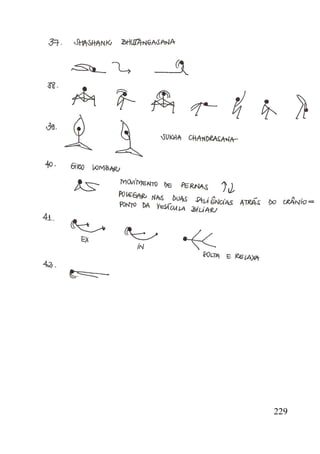 37. SHASHANK BHUJANGASANA
38.
39.
SUKHA CHANDRASANA
40. GIRO LOMBAR
MOVIMENTO DE PERNAS
POLEGAR NAS DUAS SALIÊNCIAS ATRÁS DO CRÂNIO =
PONTO DA VESÍCULA BILIAR
41.
EX
IN
SOLTA E RELAXA
42.
229